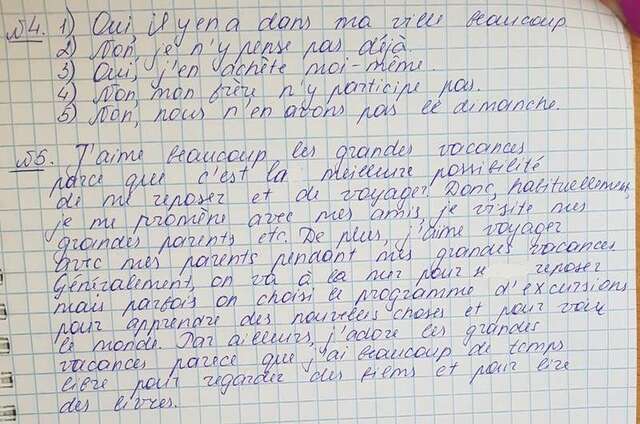 №4. 1) Oui, il y en a dans ma ville beaucoup
2) Non, je n'y pense pas déjà.
3) Oui, j'en achète moi-même.
4) Non, mon frère n'y participe pas.
5) Non, nous n'en avons pas le dimanche.
№5. J'aime beaucoup les grandes vacances
parce que c'est la meilleure possibilité
de me reposer et de voyager. Donc, habituellement,
je me promène avec mes amis, je visite mes
grandes parents etc. De plus, j'aime voyager
avec mes parents pendant mes grandes vacances
Généralement, on va à la mer pour reposer
mais parfois on choisi le programme d'excursions
pour apprendre des nouvelles choses et pour voir
le monde. Par ailleurs, j'adore les grandes
vacances parce que j'ai beaucoup de temps
libre pour regarder des films et pour lire
des livres.